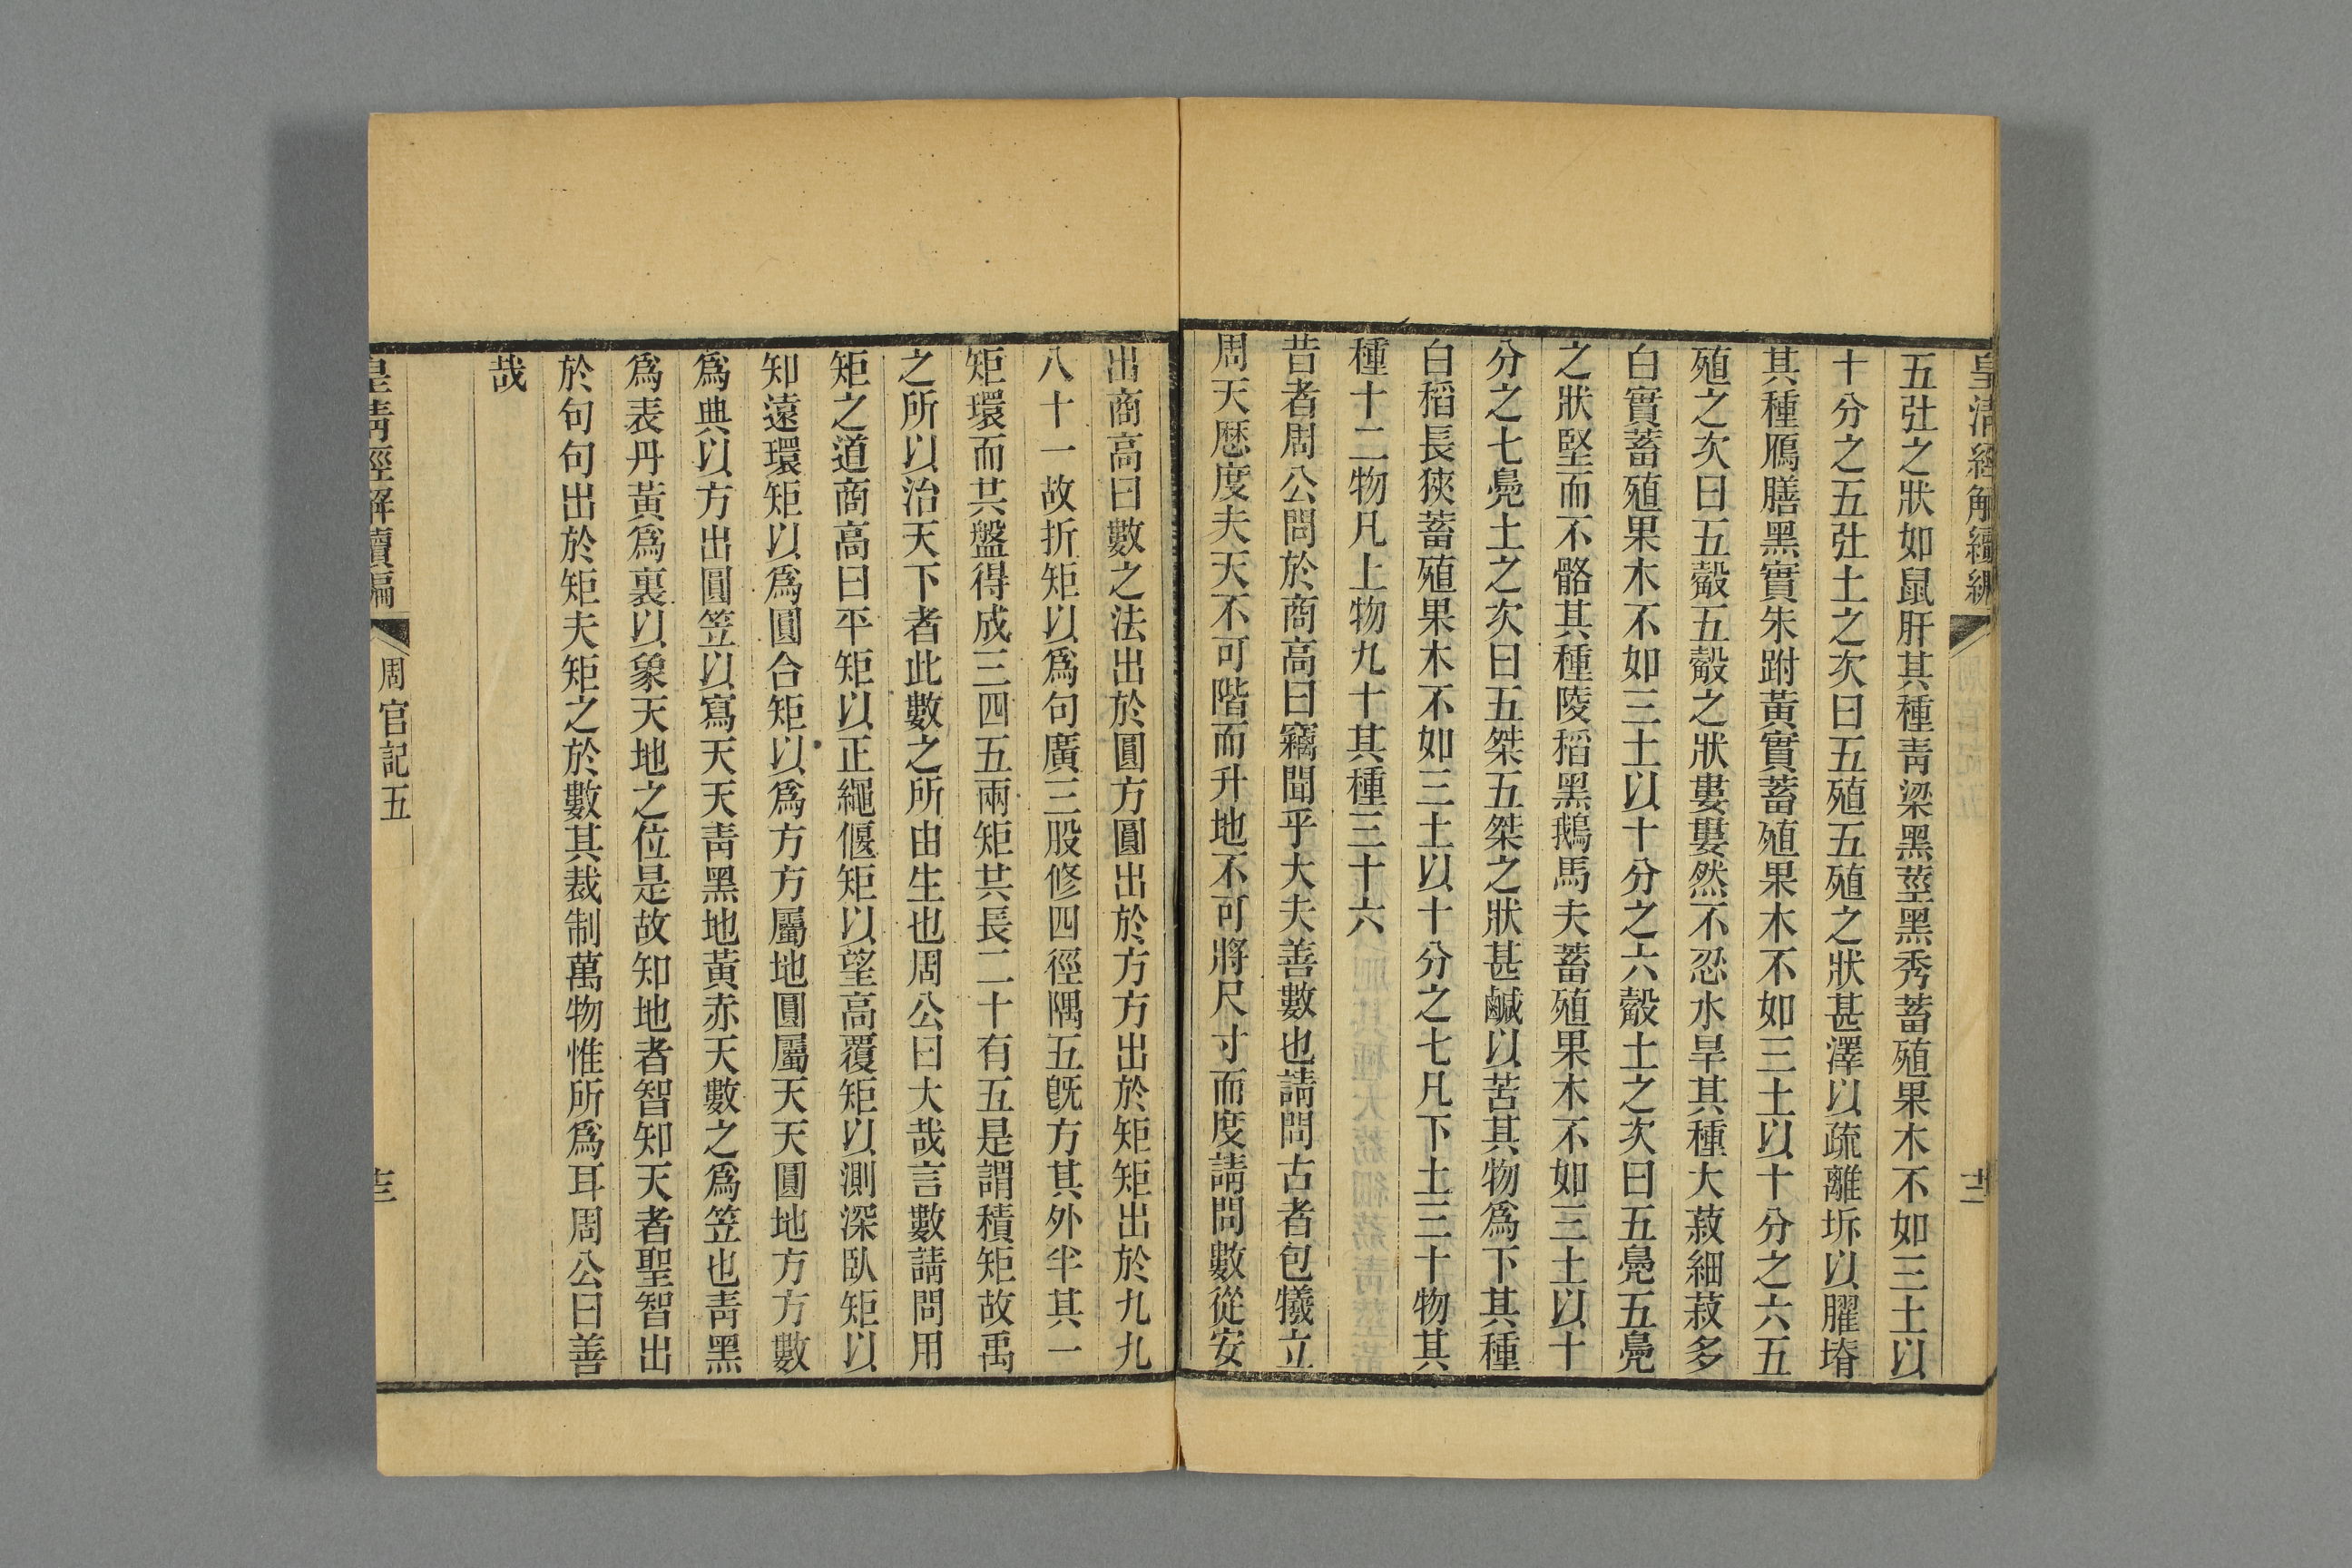 皇清經解續編
十二
五𤫊之狀如鼠肝其種靑梁黑莖黑秀蓄殖果木不如三土以
十分之五𤫊土之次曰五殖五殖之狀甚澤以疏離坼以臞塉
其種鴈膳黑實朱跗黃實蓄殖果木不如三土以十分之六五
殖之次曰五觳五觳之狀婁婁然不忍水旱其種大菽細菽多
白實蓄殖果木不如三土以十分之六觳土之次曰五鳧五鳧
之狀堅而不骼其種陵稻黑鵝馬夫蓄殖果木不如三土以十
分之七鳧土之次曰五桀五桀之狀甚鹹以苦其物爲下其種
白稻長狹蓄殖果木不如三土以十分之七凡下土三十物其
種十二物凡上物九十其種三十六
昔者周公問於商高曰竊聞乎大夫善數也請問古者包犧立
周天厯度夫天不可階而升地不可將尺寸而度請問數從安
出商高曰數之法出於圓方圓出於方方出於矩矩出於九九
八十一故折矩以爲句廣三股修四徑隅五旣方其外半其一
矩環而共盤得成三四五兩矩共長二十有五是謂積矩故禹
之所以治天下者此數之所由生也周公曰大哉言數請問用
矩之道商高曰平矩以正繩偃矩以望高覆矩以測深臥矩以
知遠環矩以爲圓合矩以爲方方屬地圓屬天天圓地方方數
爲典以方出圓笠以寫天天靑黑地黃赤天數之爲笠也靑黑
爲表丹黃爲裏以象天地之位是故知地者智知天者聖智出
於句句出於矩夫矩之於數其裁制萬物惟所爲耳周公曰善
哉
皇清經解續編
周官記五
十三